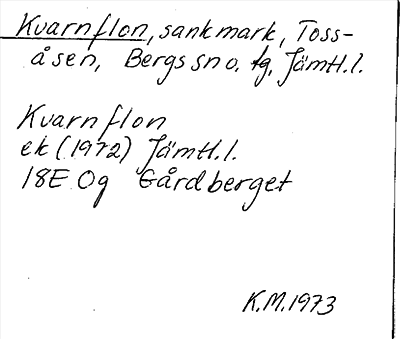 Kvarnflon, sankmark, Toss-
åsen, Bergs sno. tg, Jämtl.l.
Kvarnflon
ek (1972) Jämtl.l.
18E 0g Gårdberget
K.M.1973